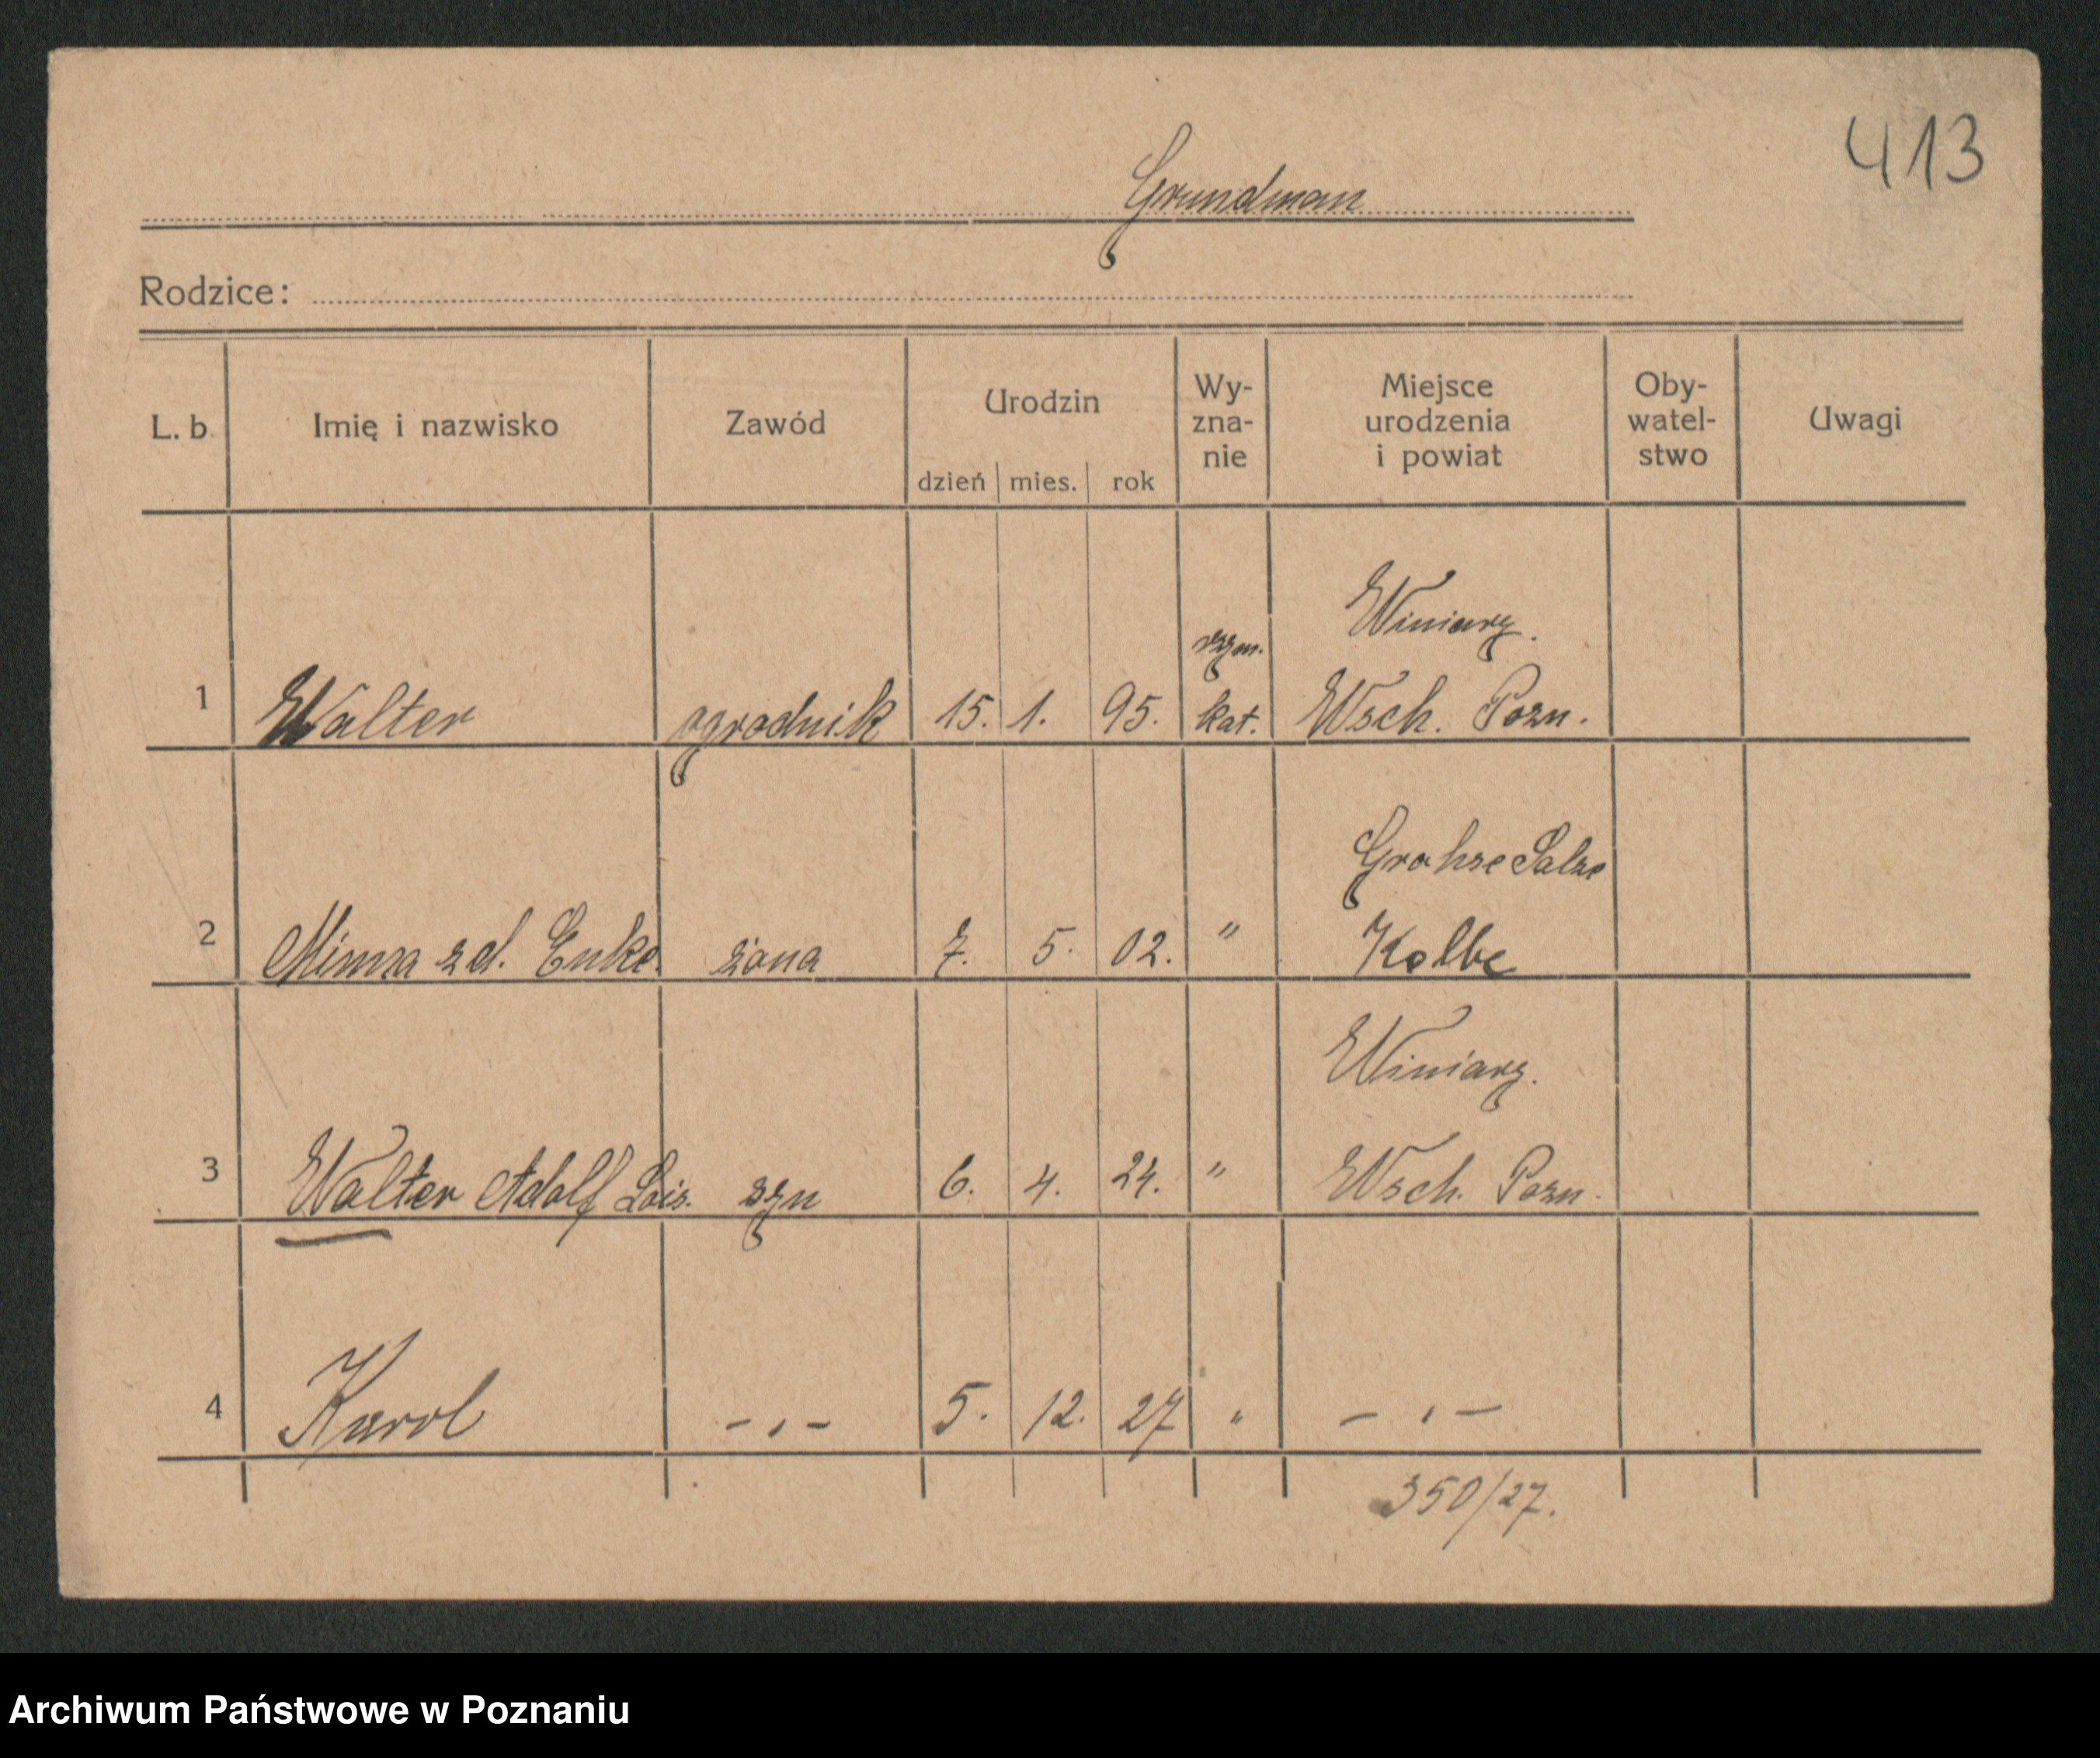 413
Grundman
Rodzice:
L. b. Imię i nazwisko Zawód Urodzin dzień mies. rok Wy-zna-nie Miejsce urodzenia i powiat Oby-watel-stwo Uwagi
Winiary.
rzym.
1 Walter ogrodnik 15. 1. 95. kat. Wsch. Pozn.
Grohse Salze
2 Minna zd. Enke. żona 7. 5. 02. " Kolbe
Winiary.
3 Walter Adolf Lois. syn 6. 4. 24. " Wsch. Pozn.
4 Karol - „ - 5. 12. 27 " - „ -
350/27.
Archiwum Państwowe w Poznaniu